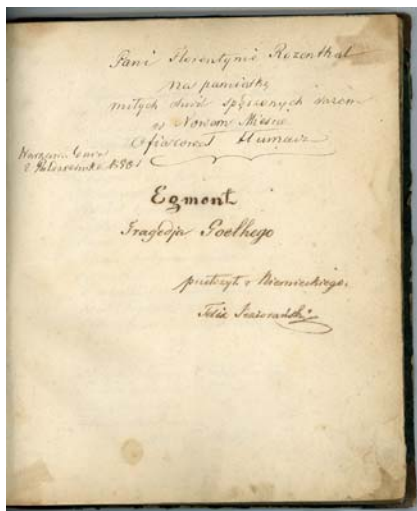 Pani Florentynie Rozenthal
na pamiątkę
miłych dni spędzonych razem
w Nowem Mieście
Ofiarował tłumacz
Warszawa
2 Października
Egmont
Tragedja Goethego
z Niemieckiego.
Felix Jeziorański